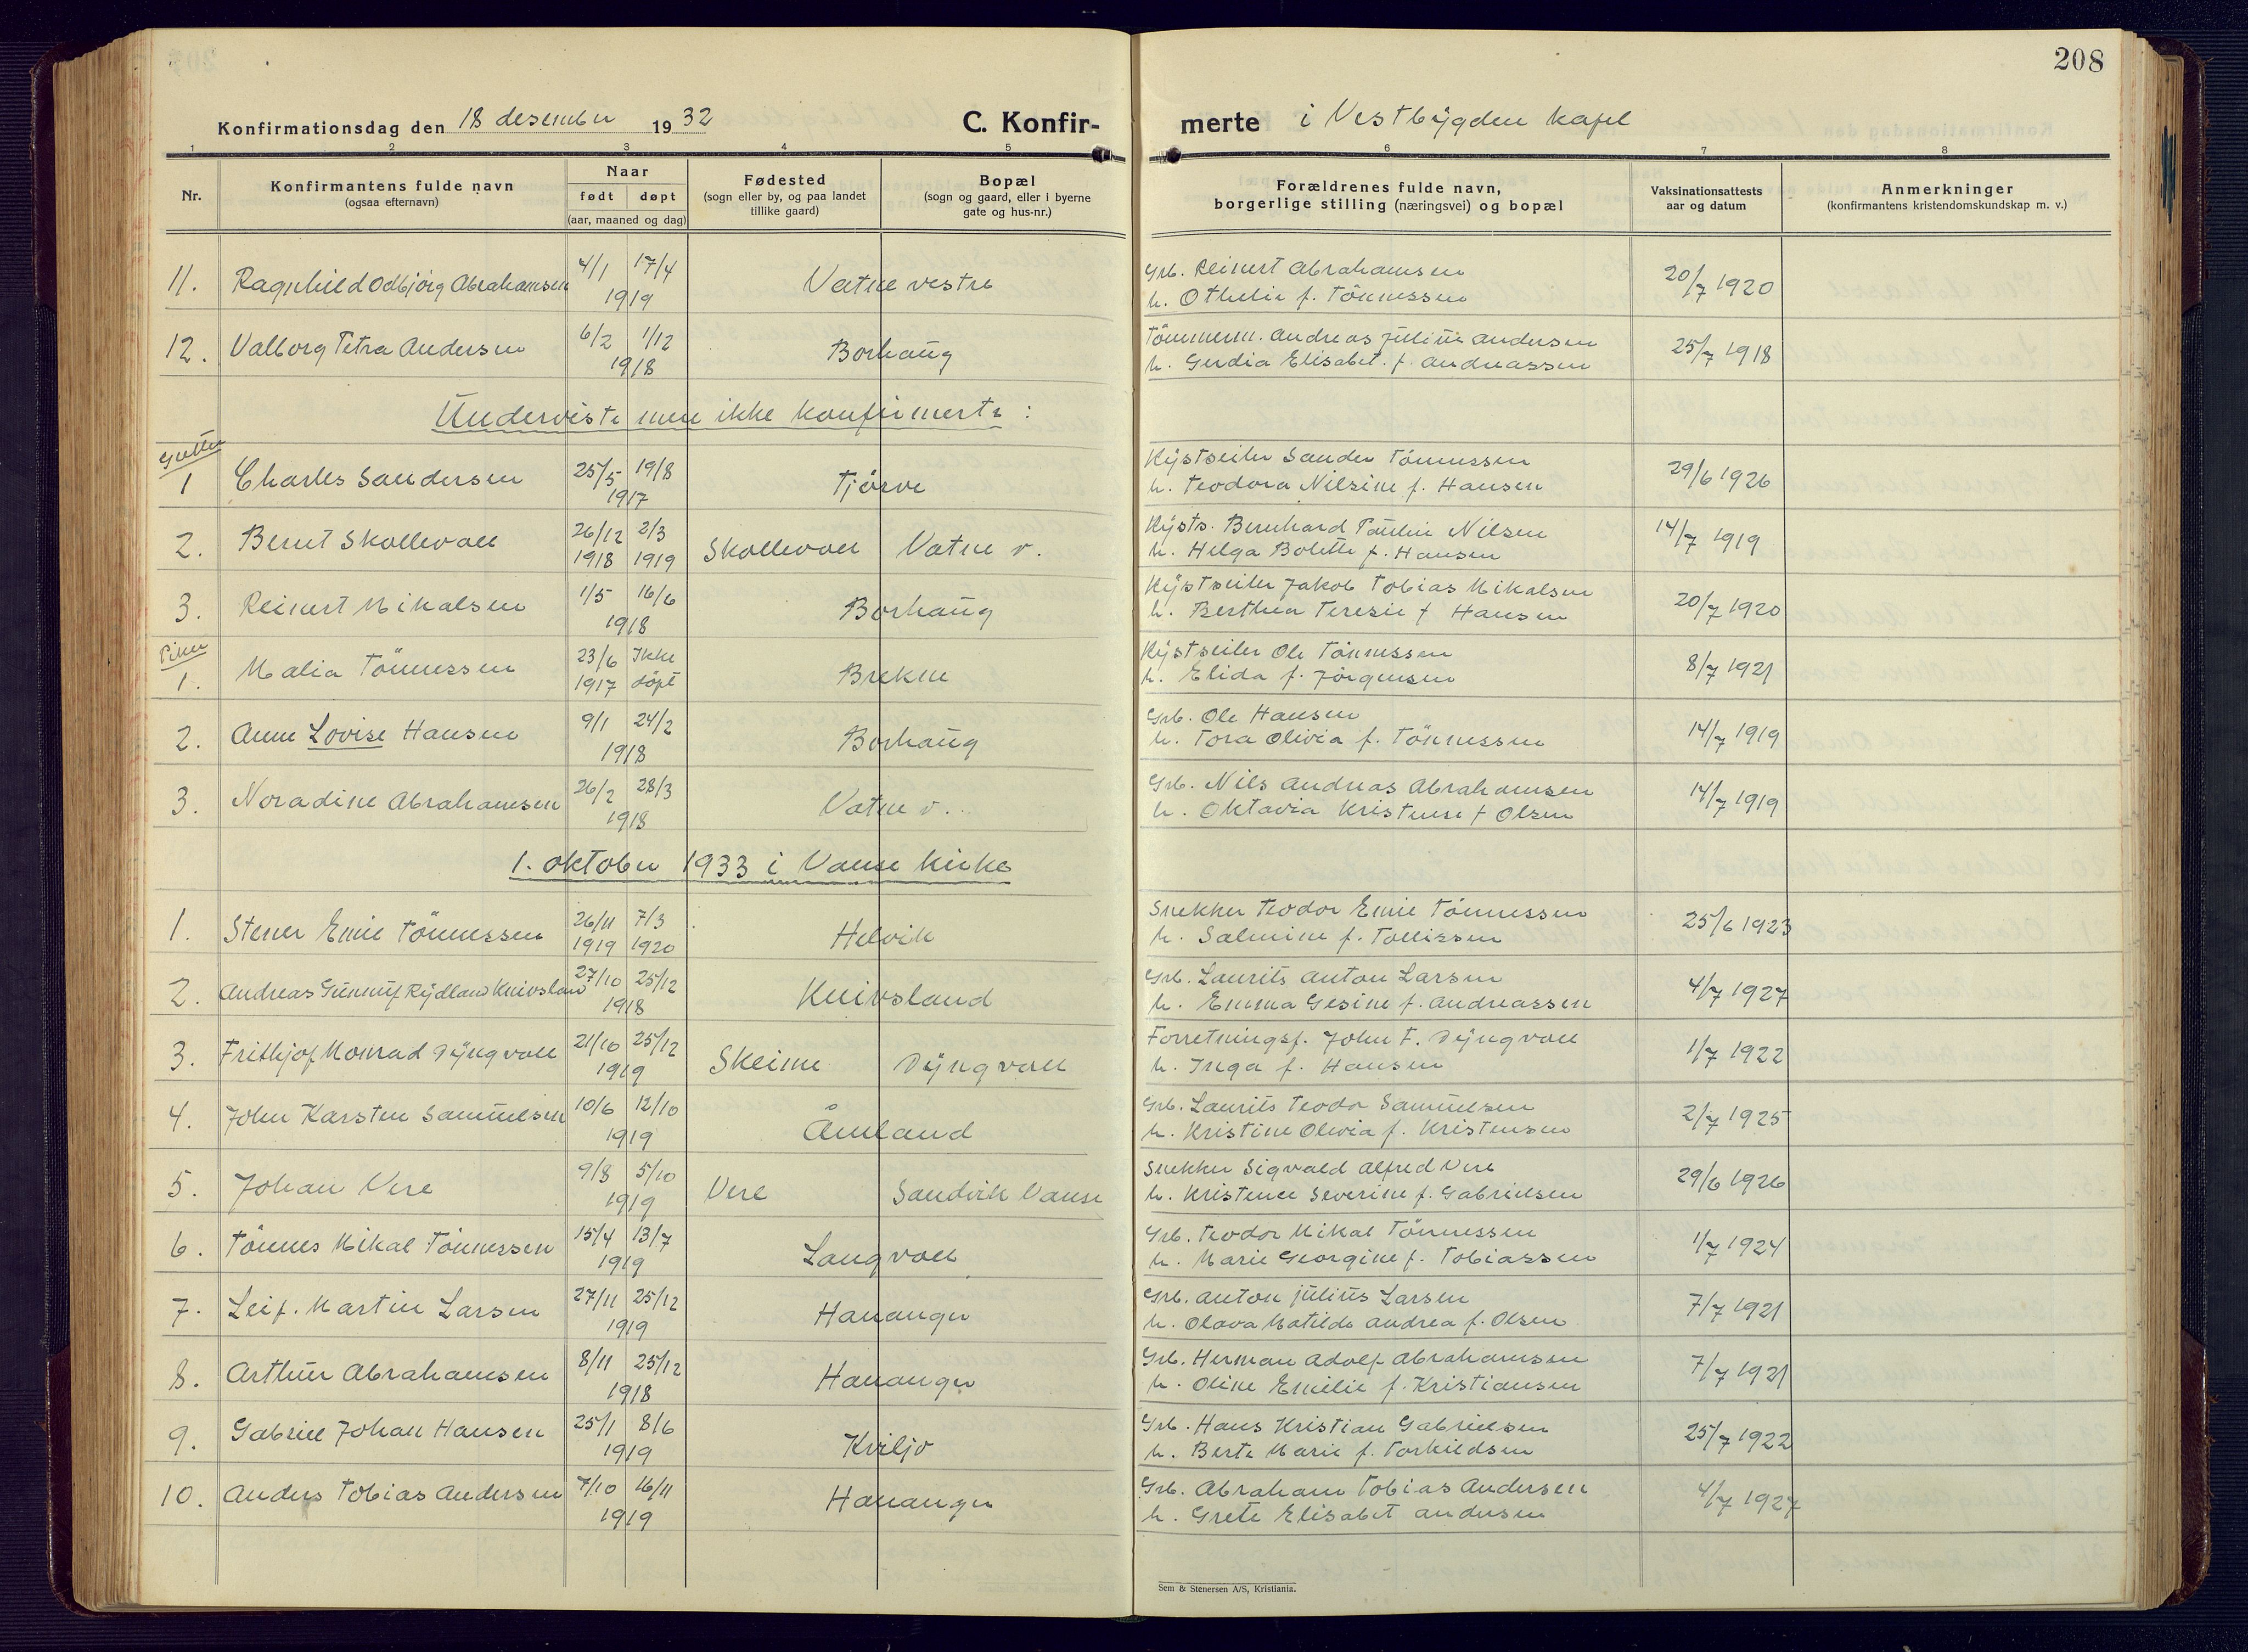 208
Konfirmationsdag den 18 desember 1932 C. Konfirmerte i Vestbygden kapel
1 2 3 4 5 6 7 8
Nr. Konfirmantens fulde navn (ogsaa efternavn) Naar født døpt (aar, maaned og dag) Fødested (sogn eller by, og paa landet tillike gaard) Bopæl (sogn og gaard, eller i byerne gate og hus-nr.) Forældrenes fulde navn, borgerlige stilling (næringsvei) og bopæl Vaksinationsattests aar og datum Anmerkninger (konfirmantens kristendomskundskap m. v.)
11. Ragnhild Odbjörg Abrahamsen 4/1 17/4 1919 Vatne vestre Grb. Reinert Abrahamsen h. Othelie f. Tönnessen 20/7 1920
12. Valborg Petra Andersen 6/2 1/12 1918 Borhaug Tömmerm. Andreas Julius Andersen h. Gerdia Elisabet. f. Andreassen 25/7 1918
Underviste men ikke konfirmerte:
Gutter
1 Charles Sandersen 25/5 19/8 1917 Tjörve Kystseiler Sander Tönnessen h. Teodora Nilsine f. Hansen 29/6 1926
2. Bernt Skollevoll 26/12 1918 2/3 1919 Skollevoll Vatne v. Kysts. Bernhard Paulin Nilsen h. Helga Bolette f. Hansen 14/7 1919
3. Reinert Mikalsen 1/5 16/6 1918 Borhaug Kystseiler Jakob Tobias Mikalsen h. Berthea Teresie f Hansen 20/7 1920
Piker
1. Malia Tönnessen 23/6 1917 Ikke döpt Brekne Kystseiler Ole Tönnessen h. Elida f. Jörgensen 8/7 1921
2. Anne Lovise Hansen 9/1 24/2 1918 Borhaug Grb. Ole Hansen h. Tora Olivia f. Tönnessen 14/7 1919
3. Noradine Abrahamsen 26/2 28/3 1918 Vatne v. Grb. Nils Andreas Abrahamsen h. Oktavia Kristense f Olsen 14/7 1919
1. oktober 1933 i Vanse kirke
1. Stener Emil Tönnessen 26/11 1919 7/3 1920 Helvik Snekker Teodor Emil Tönnessen h. Salmine f. Tollissen 25/6 1923
2. Andreas Gunnuf Rydland Knivsland 27/10 25/12 1918 Knivsland Grb. Laurits Anton Larsen h. Emma Gesine f. Andreassen 4/7 1927
3. Frithjof Monrad Dyngvoll 21/10 25/12 1919 Skeime Dyngvoll Forretningsf. John F. Dyngvoll h. Inga f. Hansen 1/7 1922
4. John Karsten Samuelsen 10/6 12/10 1919 Åmland Grb. Laurits Teodor Samuelsen h. Kristine Olivia f. Kristensen 2/7 1925
5. Johan Vere 9/8 5/10 1919 Vere Sandvik Vanse Snekker Sigvald Alfred Vere h. Kristence Severine f. Gabrielsen 29/6 1926
6. Tönnes Mikal Tönnessen 15/4 13/7 1919 Langvoll Grb. Teodor Mikal Tönnessen h. Marie Georgine f. Tobiassen 1/7 1924
7. Leif. Martin Larsen 27/11 25/12 1919 Hananger Grb. Anton Julius Larsen h. Olava Matilde Andrea f. Olsen 7/7 1921
8. Arthur Abrahamsen 8/11 25/12 1918 Hananger Grb. Herman Adolf Abrahamsen h. Oline Emilie f. Kristiansen 7/7 1921
9. Gabriel Johan Hansen 25/1 8/6 1919 Kviljo Grb. Hans Kristian Gabrielsen h. Berte Marie f. Torkildsen 25/7 1922
10. Anders Tobias Andersen 7/10 16/11 1919 Hananger Grb. Abraham Tobias Andersen h. Grete Elisabet Andersen 4/7 1927
Sem & Stenersen A/S, Kristiania.